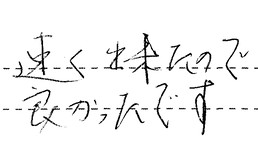 速く出来たので
良かったです